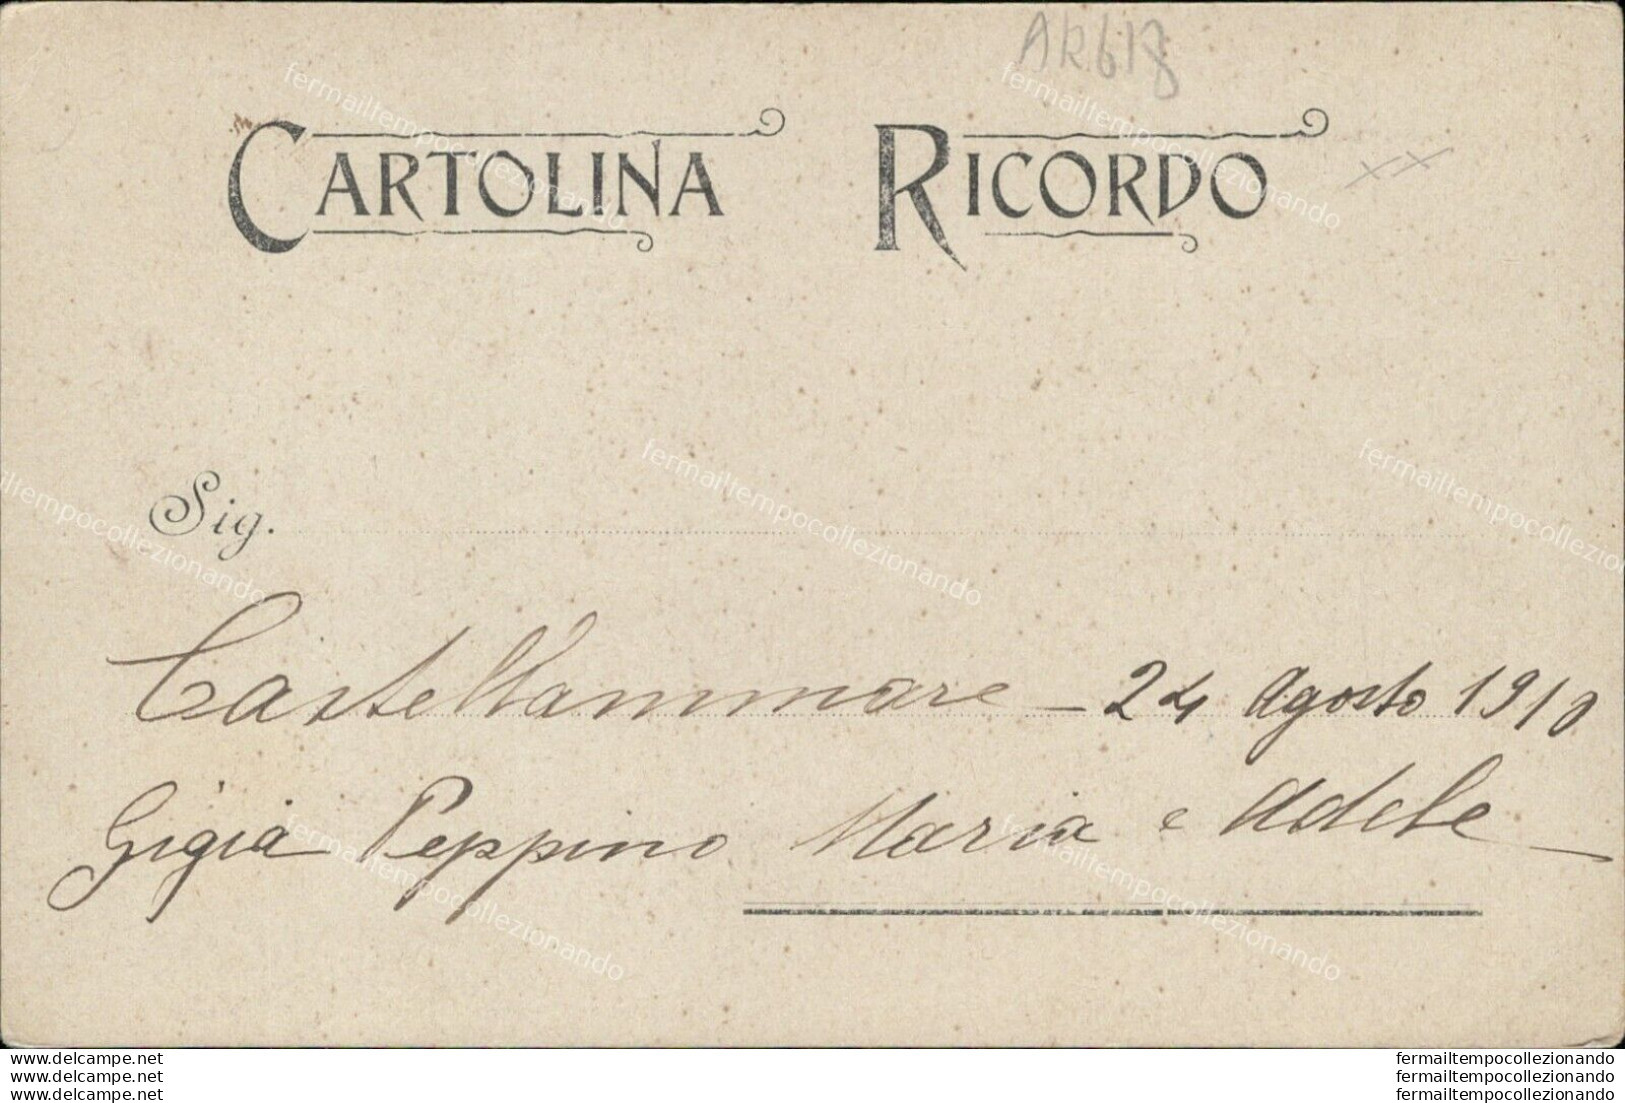 AR618
CARTOLINA RICORDO
xx
Sig.
Castellammare - 24 Agosto 1910
Gigia Peppino Maria e Adele
fermailtempocollezionando
www.delcampe.net fermailtempocollezionando
www.delcampe.net fermailtempocollezionando
www.delcampe.net fermailtempocollezionando